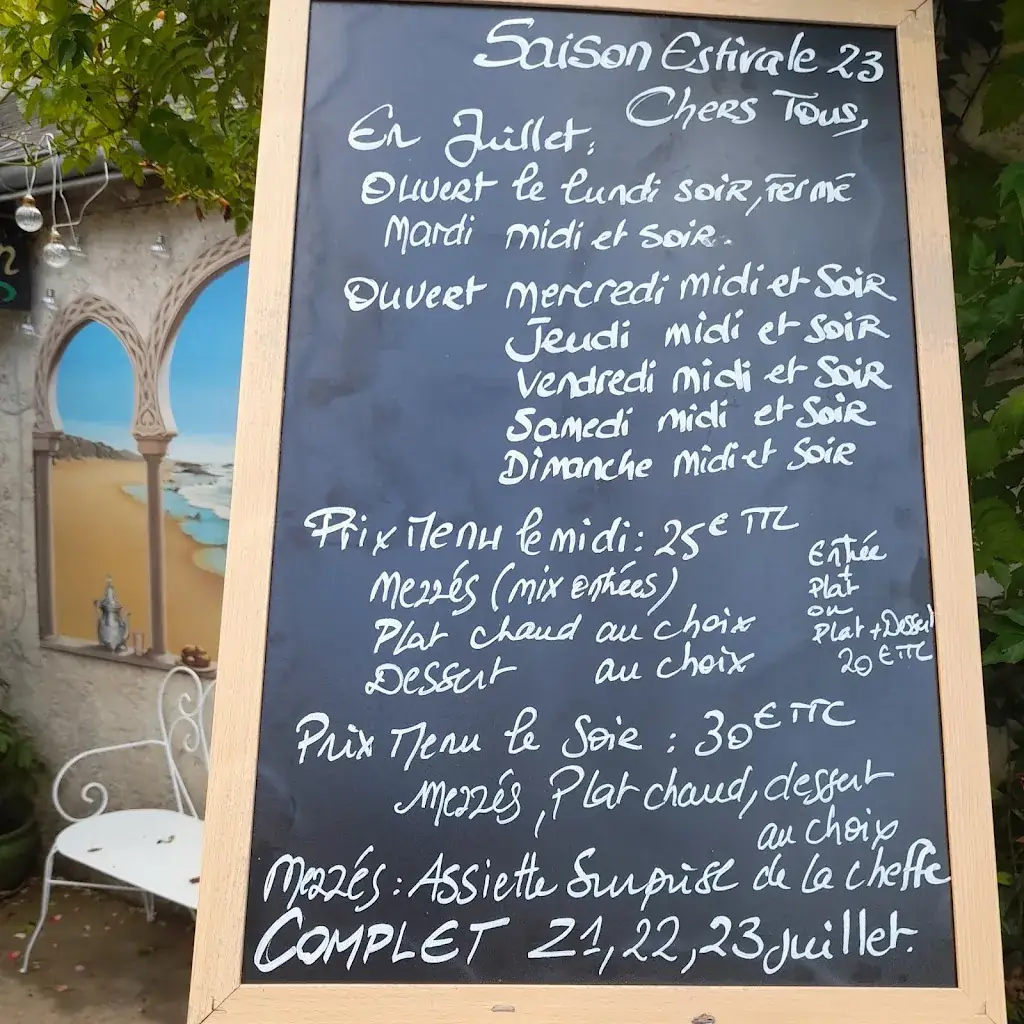 Saison Estivale 23
Chers Tous,
En Juillet:
Ouvert le lundi soir, fermé
Mardi midi et soir.
Ouvert mercredi midi et soir
Jeudi midi et soir
Vendredi midi et soir
Samedi midi et soir
Dimanche midi et soir
Prix Menu le midi: 25€ TTC
Mezzés (mix entrées)
Plat chaud au choix
Dessert au choix
Entrée
Plat
ou
Plat + Dessert
20€ TTC
Prix Menu le Soir : 30€ TTC
Mezzés, Plat chaud, dessert
au choix
Mezzés : Assiette Surprise de la cheffe
COMPLET 21, 22, 23 juillet.